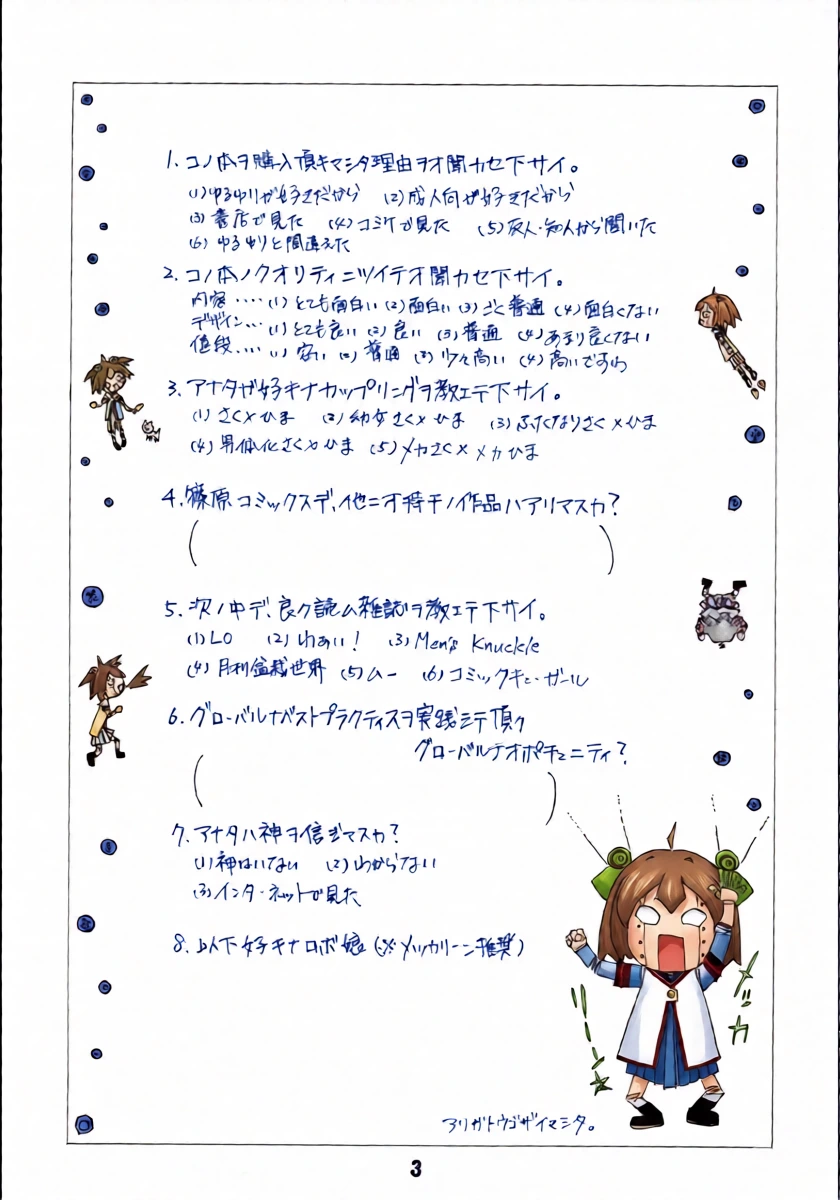 1. コノ本ヲ購入頂キマシタ理由ヲオ聞カセ下サイ。
(1)ゆるゆりが好きだから (2)成人向が好きだから
(3)書店で見た (4)コミケで見た (5)友人・知人から聞いた
(6)ゆるゆりと間違えた
2. コノ本ノクオリティニツイテオ聞カセ下サイ。
内容‥‥(1)とても面白い (2)面白い (3)ごく普通 (4)面白くない
デザイン‥(1)とても良い (2)良い (3)普通 (4)あまり良くない
値段‥‥(1)安い (2)普通 (3)少々高い (4)高いですわ
3. アナタガ好キナカップリングヲ教エテ下サイ。
(1)さく×ひま (2)幼女さく×ひま (3)ふたなりさく×ひま
(4)男体化さく×ひま (5)メカさく×メカひま
4. 篠原コミックスデ、他ニオ持チノ作品ハアリマスカ?
( )
5. 次ノ中デ、良ク読ム雑誌ヲ教エテ下サイ。
(1)LO (2)わぁい! (3)Men's Knuckle
(4)月刊盆栽世界 (5)ムー (6)コミックキューガール
6. グローバルナベストプラクティスヲ実践シテ頂ク
グローバルナオポチュニティ?
( )
7. アナタハ神ヲ信ジマスカ?
(1)神はいない (2)わからない
(3)インターネットで見た
8. 以下好キナロボ娘(※メッカリーン推奨)
メカ
リーン★
アリガトウゴザイマシタ。
3